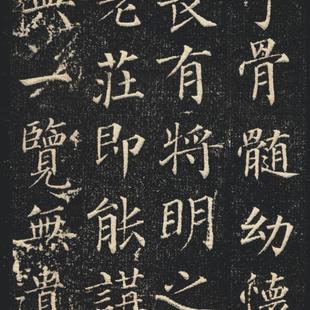 骨髓幼懷
有將明之
老莊即能講
一覽無遺